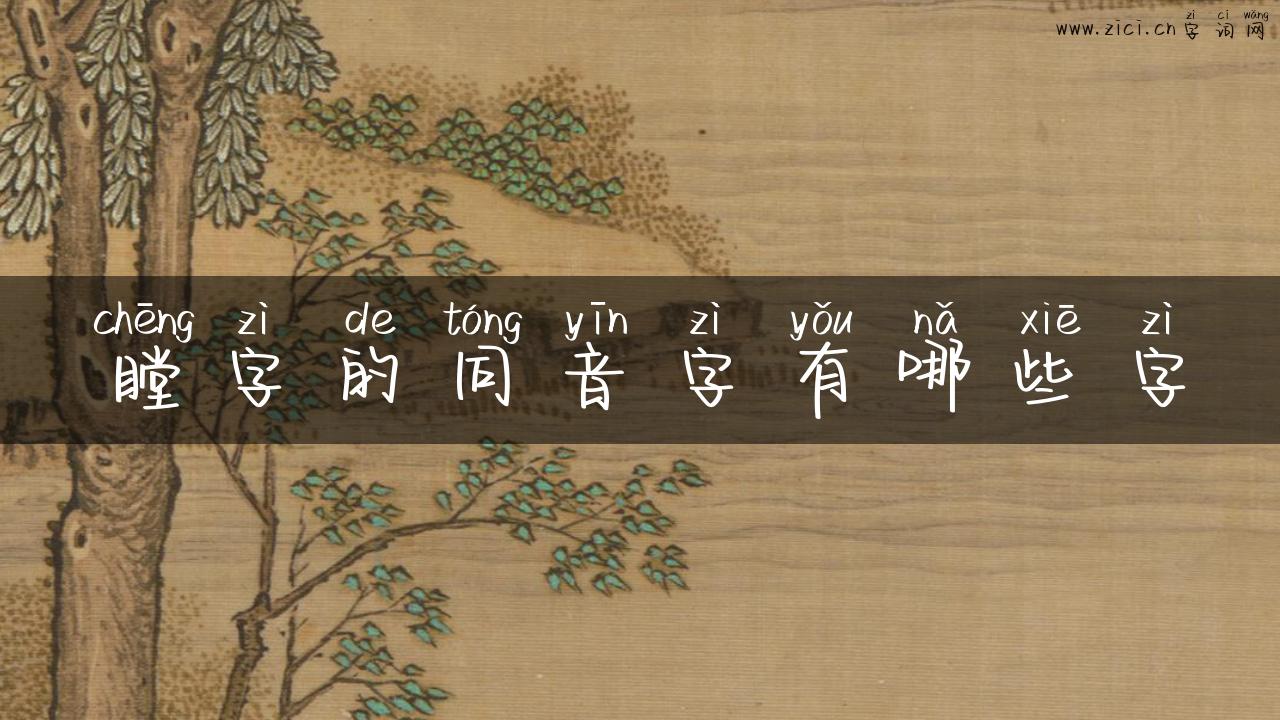 zì cí wǎng
www.zici.cn 字词网
chēng zì de tóng yīn zì yǒu nǎ xiē zì
瞠字的同音字有哪些字